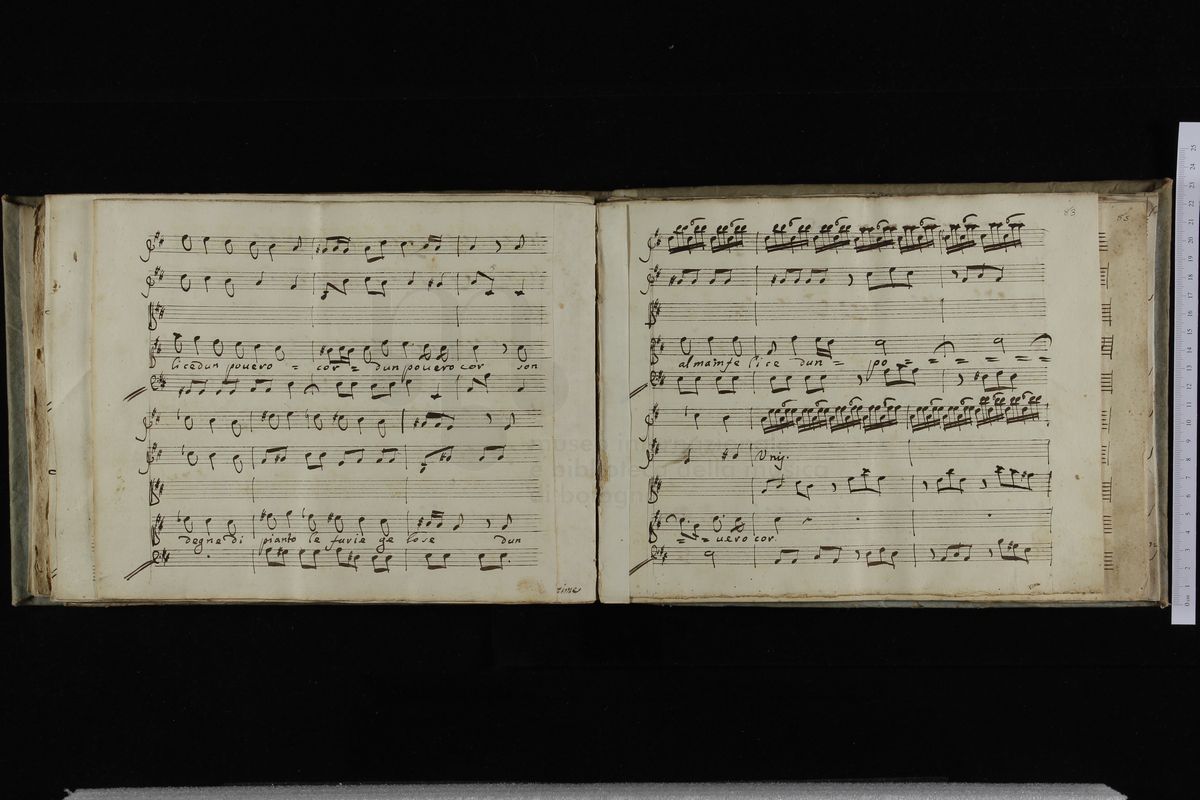 licedun pouero - cor - dun pouero cor son
degne di pianto le furie gelose dun
83
85
alma infelice dun - po - - - - - - -
Unis.
- - uero cor.
museo internazionale
e biblioteca della musica
di bologna